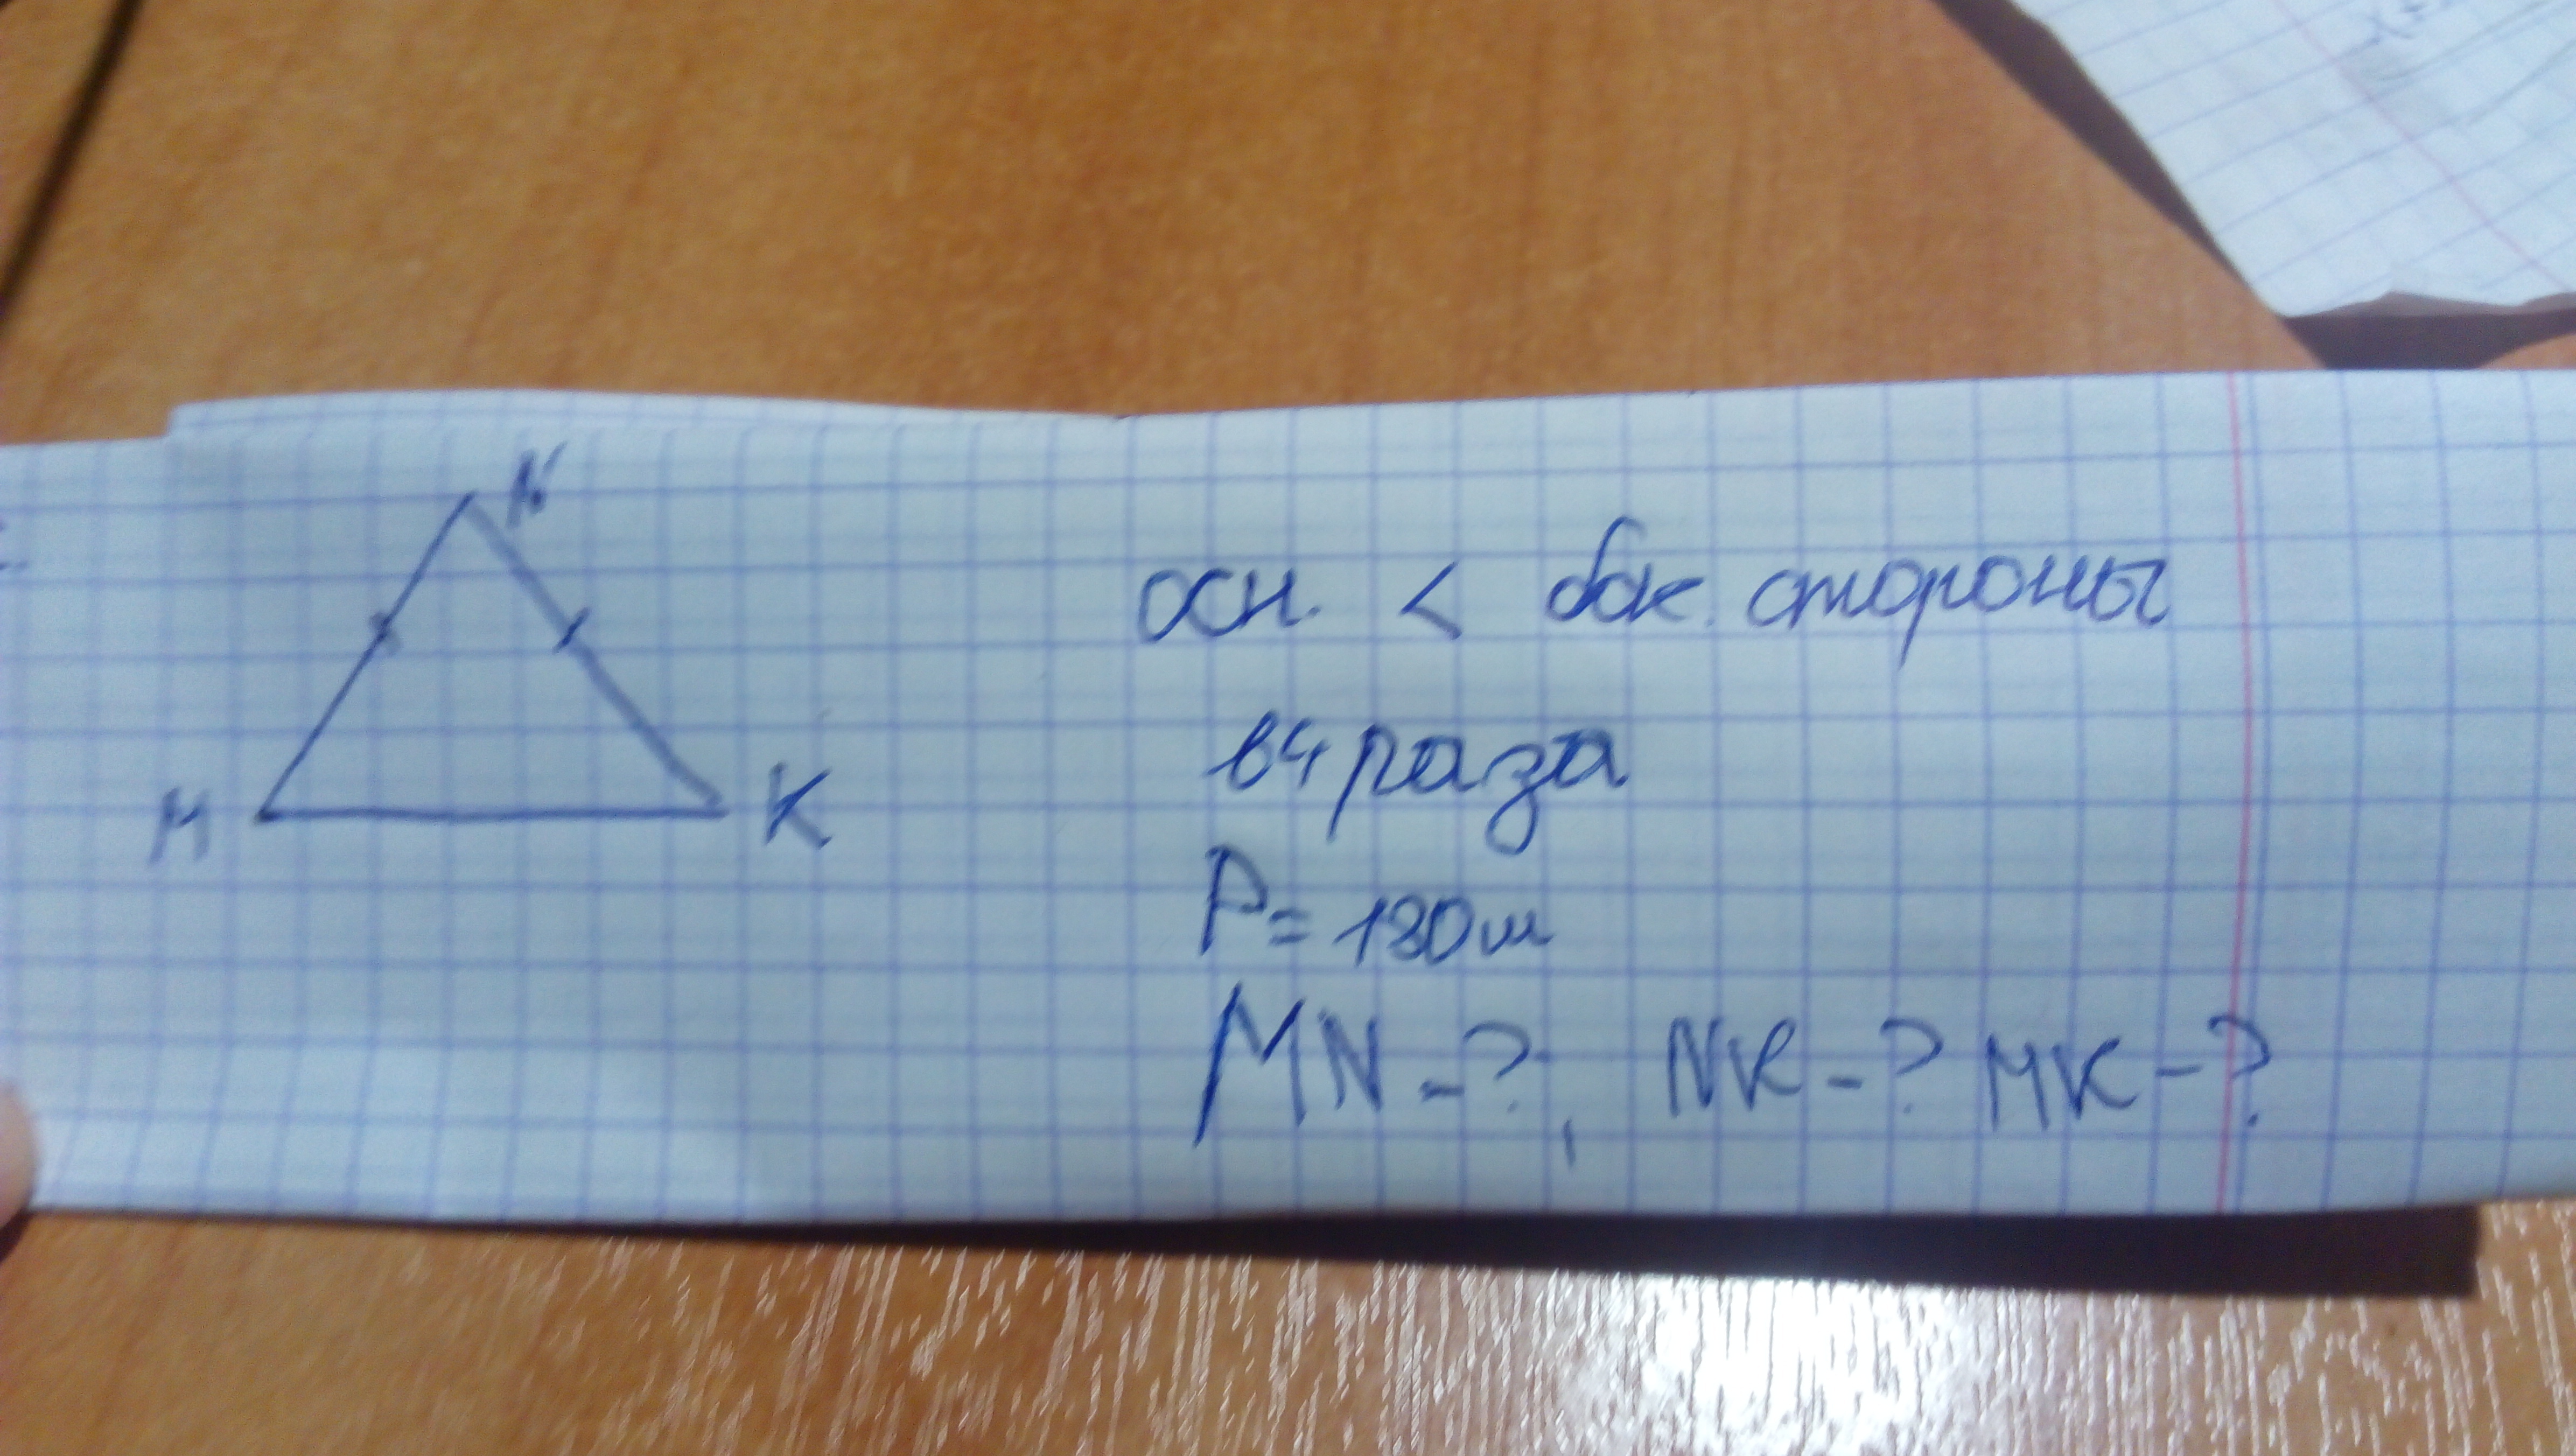 N
M K
осн. < бок. стороны
в 4 раза
P = 180 см
MN - ?, NK - ? MK - ?